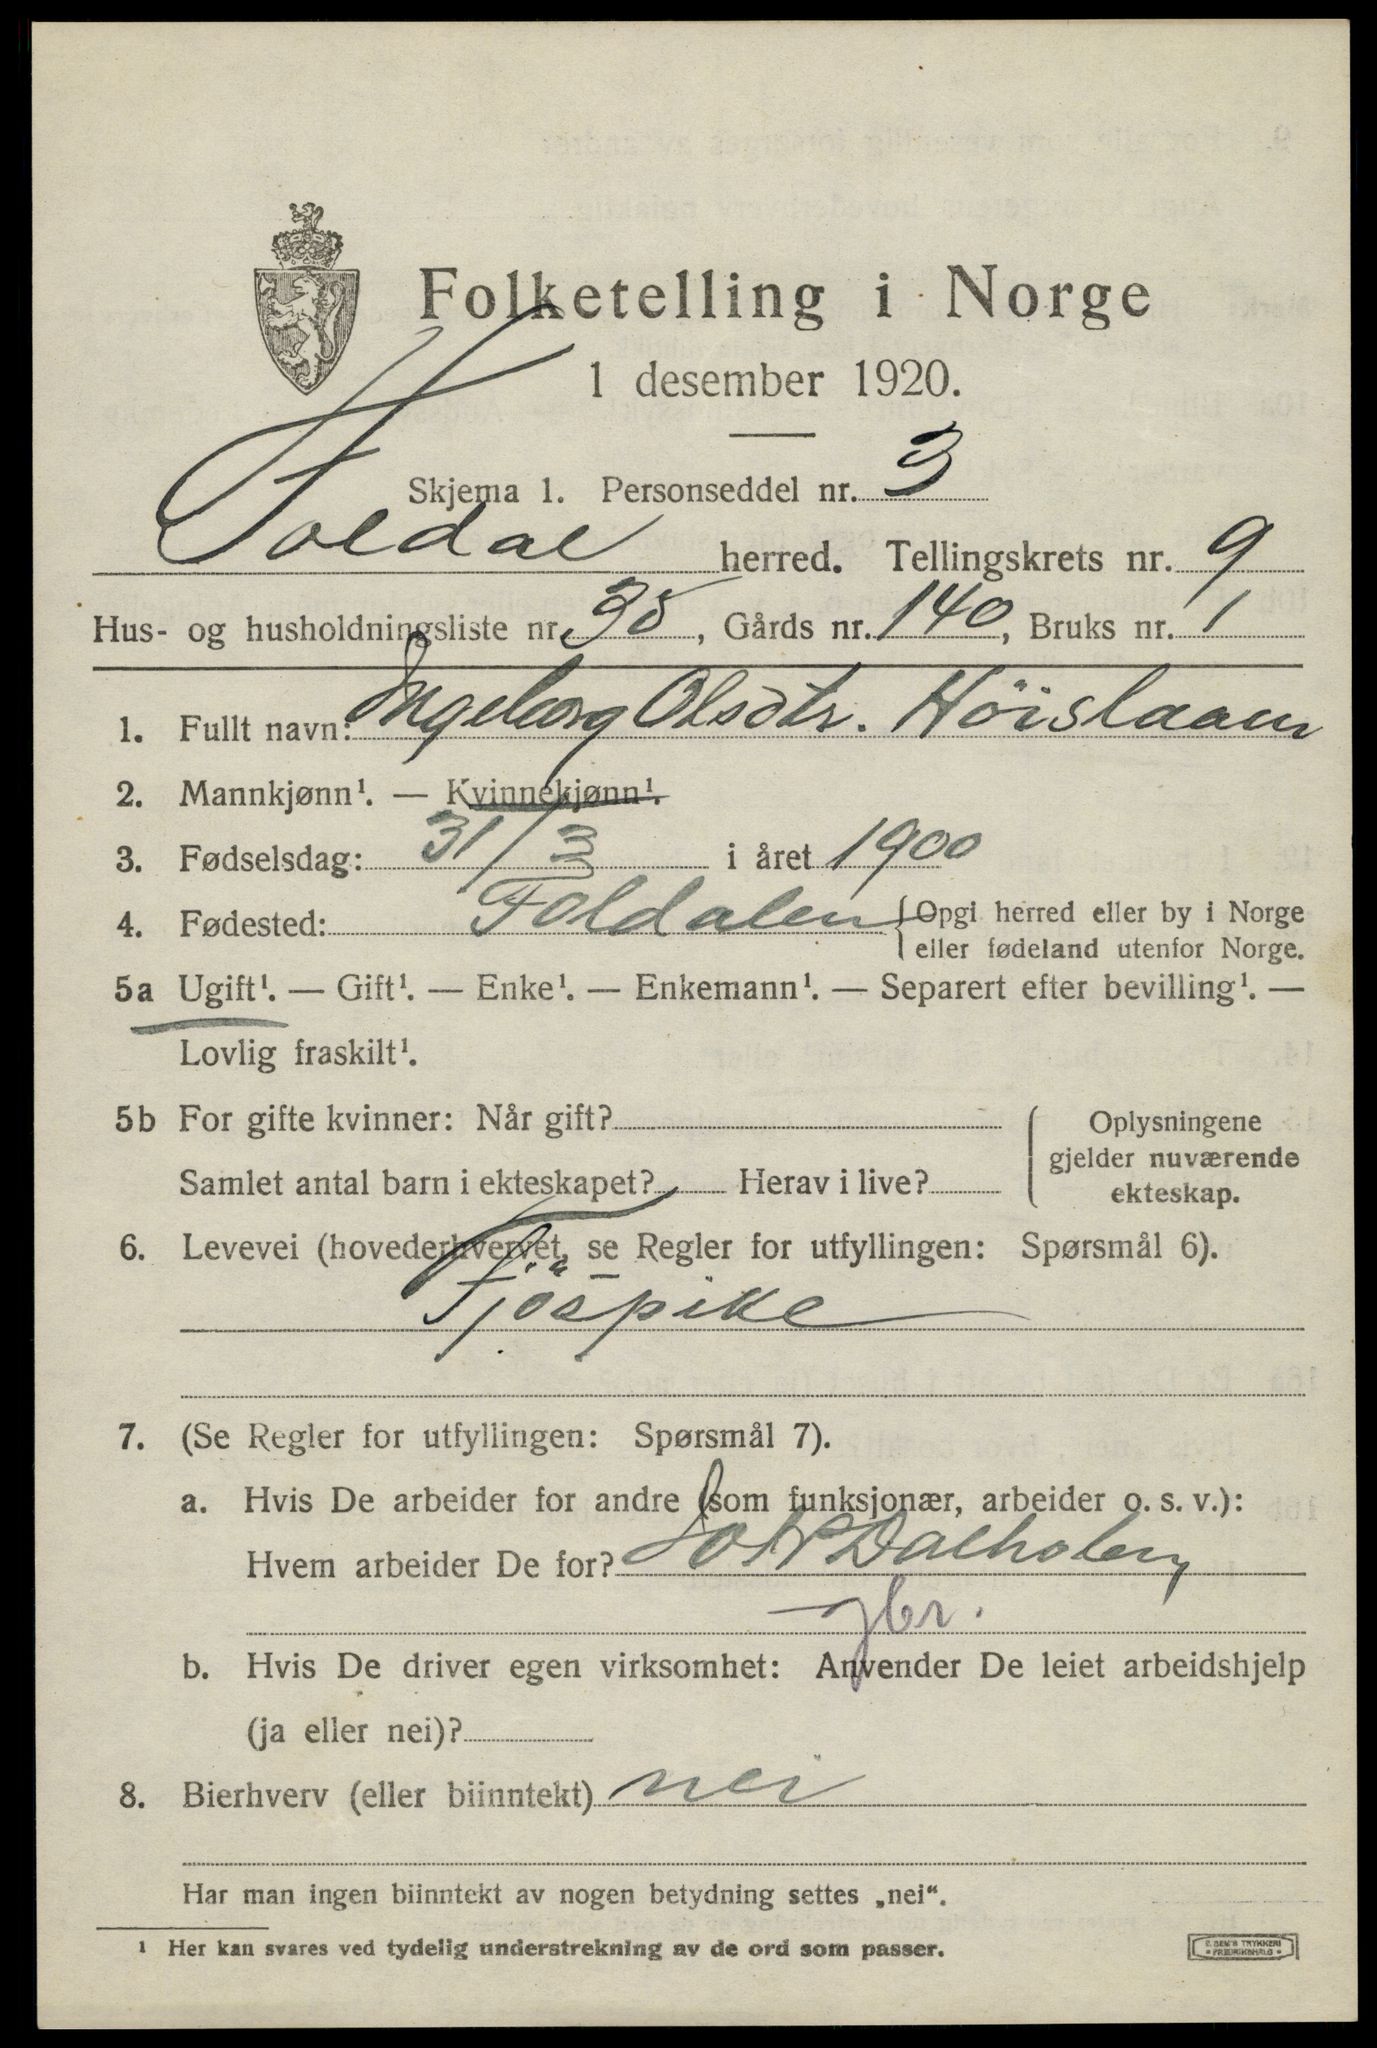 Folketelling i Norge
1 desember 1920.
Skjema 1. Personseddel nr. 3
Foldal herred. Tellingskrets nr. 9
Hus- og husholdningsliste nr. 35, Gårds nr. 140, Bruks nr. 1
1. Fullt navn: Ingeborg Olsdtr. Höislaaen
2. Mannkjønn¹. — Kvinnekjønn¹.
3. Fødselsdag: 31/3 i året 1900
4. Fødested: Foldalen {Opgi herred eller by i Norge
eller fødeland utenfor Norge.
5a Ugift¹. — Gift¹. — Enke¹. — Enkemann¹. — Separert efter bevilling¹. —
Lovlig fraskilt¹.
5b For gifte kvinner: Når gift? Oplysningene
gjelder nuværende
Samlet antal barn i ekteskapet? Herav i live? ekteskap.
6. Levevei (hovederhvervet, se Regler for utfyllingen: Spørsmål 6).
Fjöspike
7. (Se Regler for utfyllingen: Spørsmål 7).
a. Hvis De arbeider for andre (som funksjonær, arbeider o. s. v.):
Hvem arbeider De for? Dalholen
gbr.
b. Hvis De driver egen virksomhet: Anvender De leiet arbeidshjelp
(ja eller nei)?
8. Bierhverv (eller biinntekt) nei
Har man ingen biinntekt av nogen betydning settes „nei".
¹ Her kan svares ved tydelig understrekning av de ord som passer.
E. SEM'S TRYKKERI
• FREDRIKSHALD •